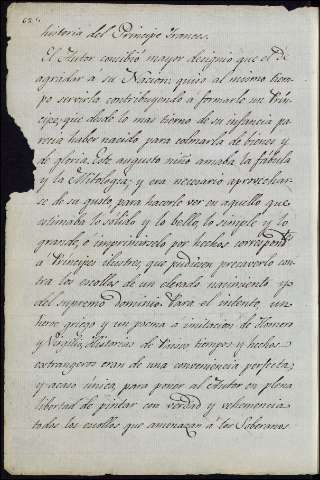 historia del Principe Frances.
El Autor concibió mayor designio que el de
agradar a su Nacion; quiso al mismo tiem-
po servirla contribuyendo á formarle un Prin-
cipe, que desde lo mas tierno de su infancia pa-
recia haber nacido para colmarla de bienes y
de gloria. Este augusto niño amaba la fábula
y la Mitologia; y era necesario aprovechar-
se de su gusto, para hacerle ver en aquello que
estimaba lo sólido y lo bello, lo simple y lo
grande, é imprimirselo por hechos
á Principes ilustres, que pudiesen precaverlo con-
tra los escollos de un elevado nacimiento y
del supremo Dominio. Para el intento, un
heroe griego y un poema á imitacion de Homero
y Virgilio, Historias de Paises, tiempos y hechos
extrangeros eran de una conveniencia perfecta,
y acaso única, para poner al Autor en plena
libertad de pintar con verdad y vehemencia
todos los escollos que amenazan á los Soberanos